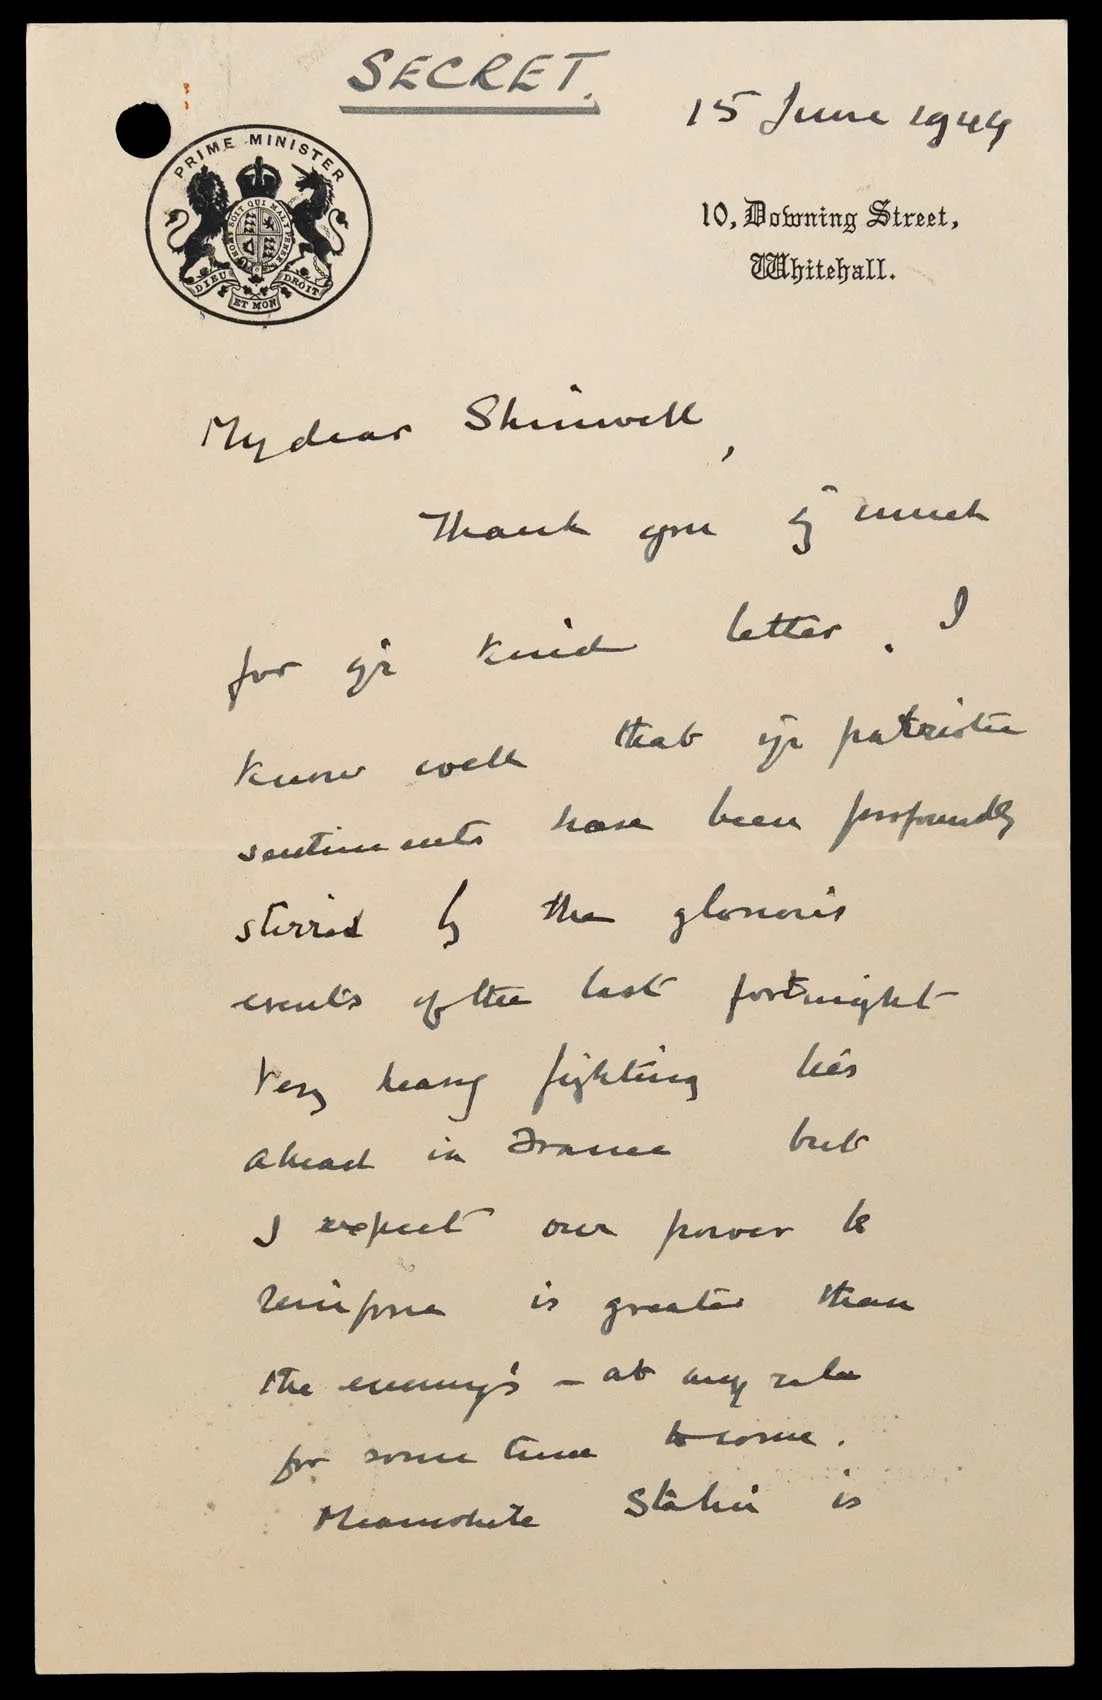 SECRET.
15 June 1944
PRIME MINISTER
HONI SOIT QUI MAL Y PENSE
DIEU ET MON DROIT
10, Downing Street,
Whitehall.
My dear Shinwell,
Thank you much
for yr kind letter. I
know well that yr patriotic
sentiments have been profoundly
stirred by the glorious
events of the last fortnight
Very heavy fighting lies
ahead in France but
I expect our power to
reinforce is greater than
the enemy's – at any rate
for some time to come.
Meanwhile Stalin is